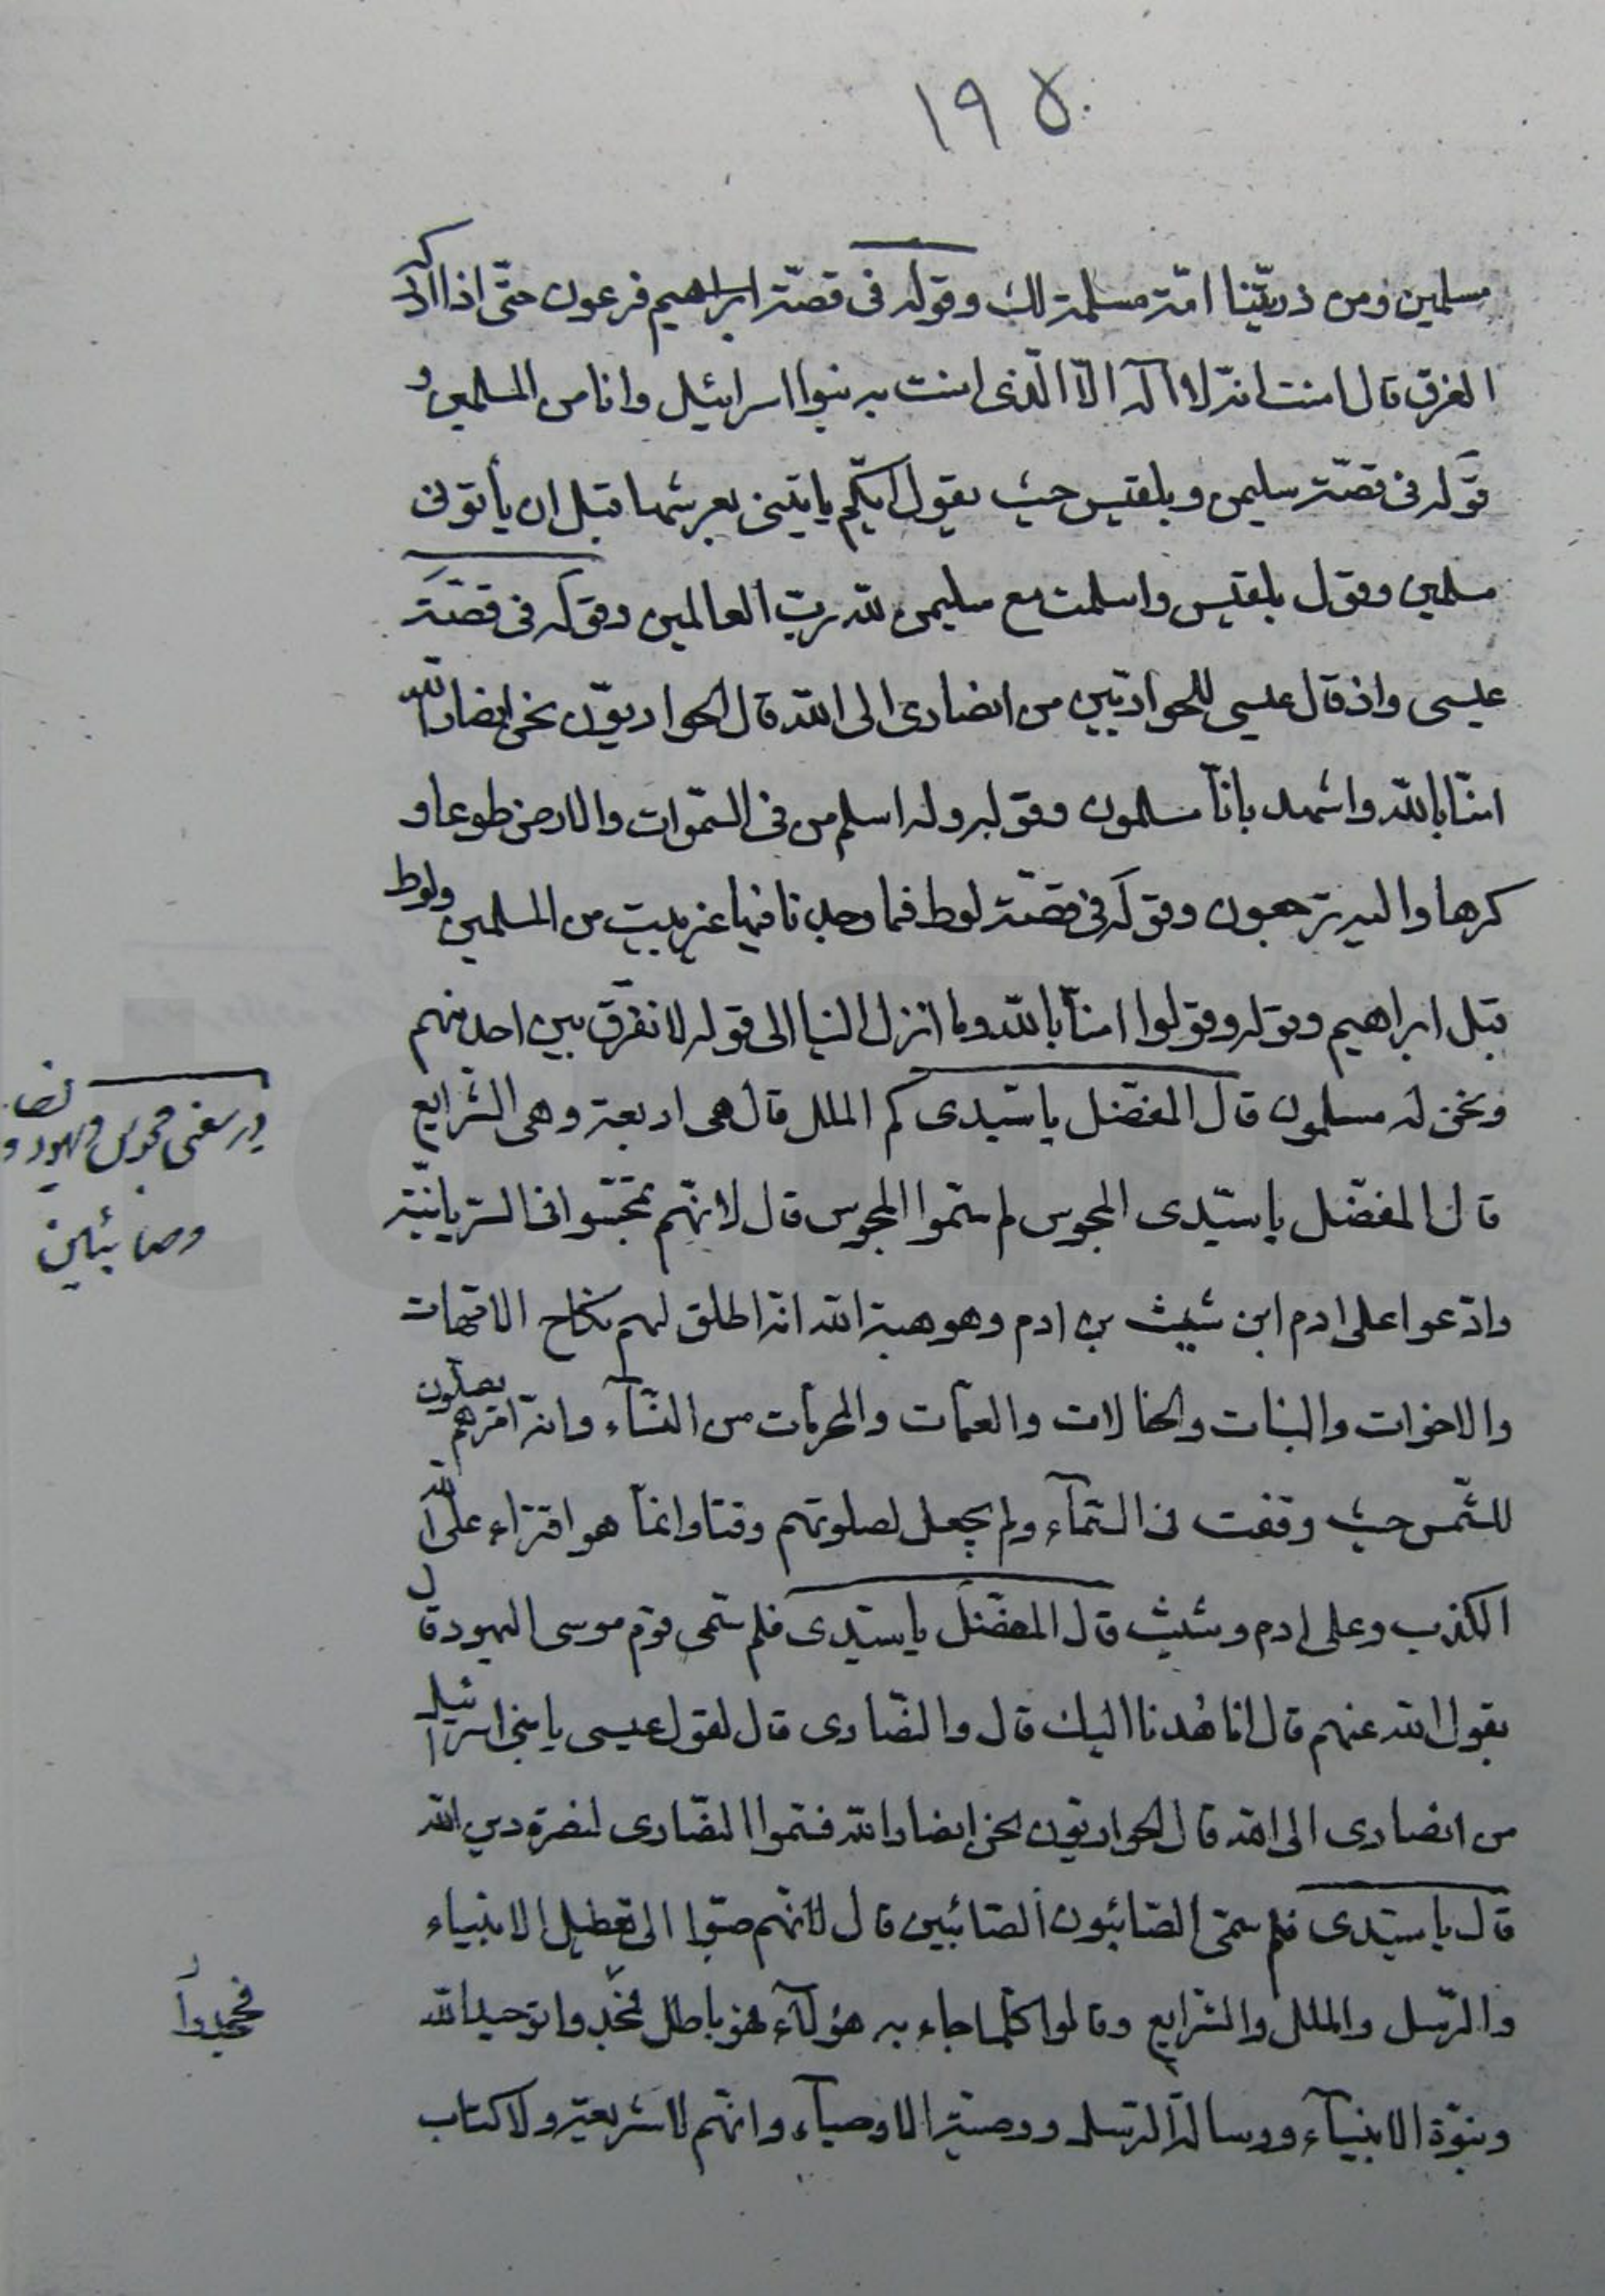 ١٩٥
مسلمين ومن ذريّتنا امّة مسلمة لك وقوله فى قصّة ابراهيم فرعون حتّى اذا ادركه
الغرق قال امنت انّه لا اله الّا الّذى امنت به بنوا اسرائيل وانا من المسلمين و
قوله فى قصّة سليمن وبلقيس حيث يقول ايّكم ياتينى بعرشها قبل ان يأتونى
مسلمين وقول بلقيس واسلمت مع سليمن لله ربّ العالمين وقوله فى قصّة
عيسى واذ قال عيسى للحواريّين من انصارى الى الله قال الحواريّون نحن انصار الله
امنّا بالله واشهد بانّا مسلمون وقوله وله اسلم من فى السّموات والارض طوعا و
كرها واليه ترجعون وقوله فى قصّة لوط فما وجدنا فيها غير بيت من المسلمين ولوط
قبل ابراهيم وقوله وقولوا امنّا بالله وما انزل الينا الى قوله لا نفرّق بين احد منهم
ونحن له مسلمون قال المفضّل يا سيّدى كم الملل قال هى اربعة وهى الشّرايع
قال المفضّل يا سيّدى المجوس لم سمّوا المجوس قال لانّهم تمجّسوا فى السّريانيّة
وادّعوا على ادم ابن شيث بن ادم وهو هبة الله انّه اطلق لهم نكاح الامّهات
والاخوات والبنات والخالات والعمّات والمحرّمات من النّسآء وانّه امرهم يصلّون
للشّمس حيث وقفت فى السّمآء ولم يجعل لصلوتهم وقتا وانّمآ هو افتراء على الله
الكذب وعلى ادم وشيث قال المفضّل يا سيّدى فلم سمّى قوم موسى اليهود قال
بقول الله عنهم قال انا هُدنا اليك قال والنّصارى قال لقول عيسى يا بنى اسرائيل
من انصارى الى الله قال الحواريّون نحن انصار الله فسمّوا النّصارى لنصرة دين الله
قال يا سيّدى فلم سمّى الصّائبون الصّائبين قال لانّهم صبّوا الى تعطيل الانبياء
والرّسل والملل والشّرايع وقالوا كلّما جاء به هؤلآء فهو باطل فجحدوا توحيد الله
ونبوّة الانبيآء ورسالة الرّسل ووصيّة الاوصيآء وانّهم لا شريعة ولا كتاب
در معنى مجوس ويهود و نصا
وصائبين
فجحدوا